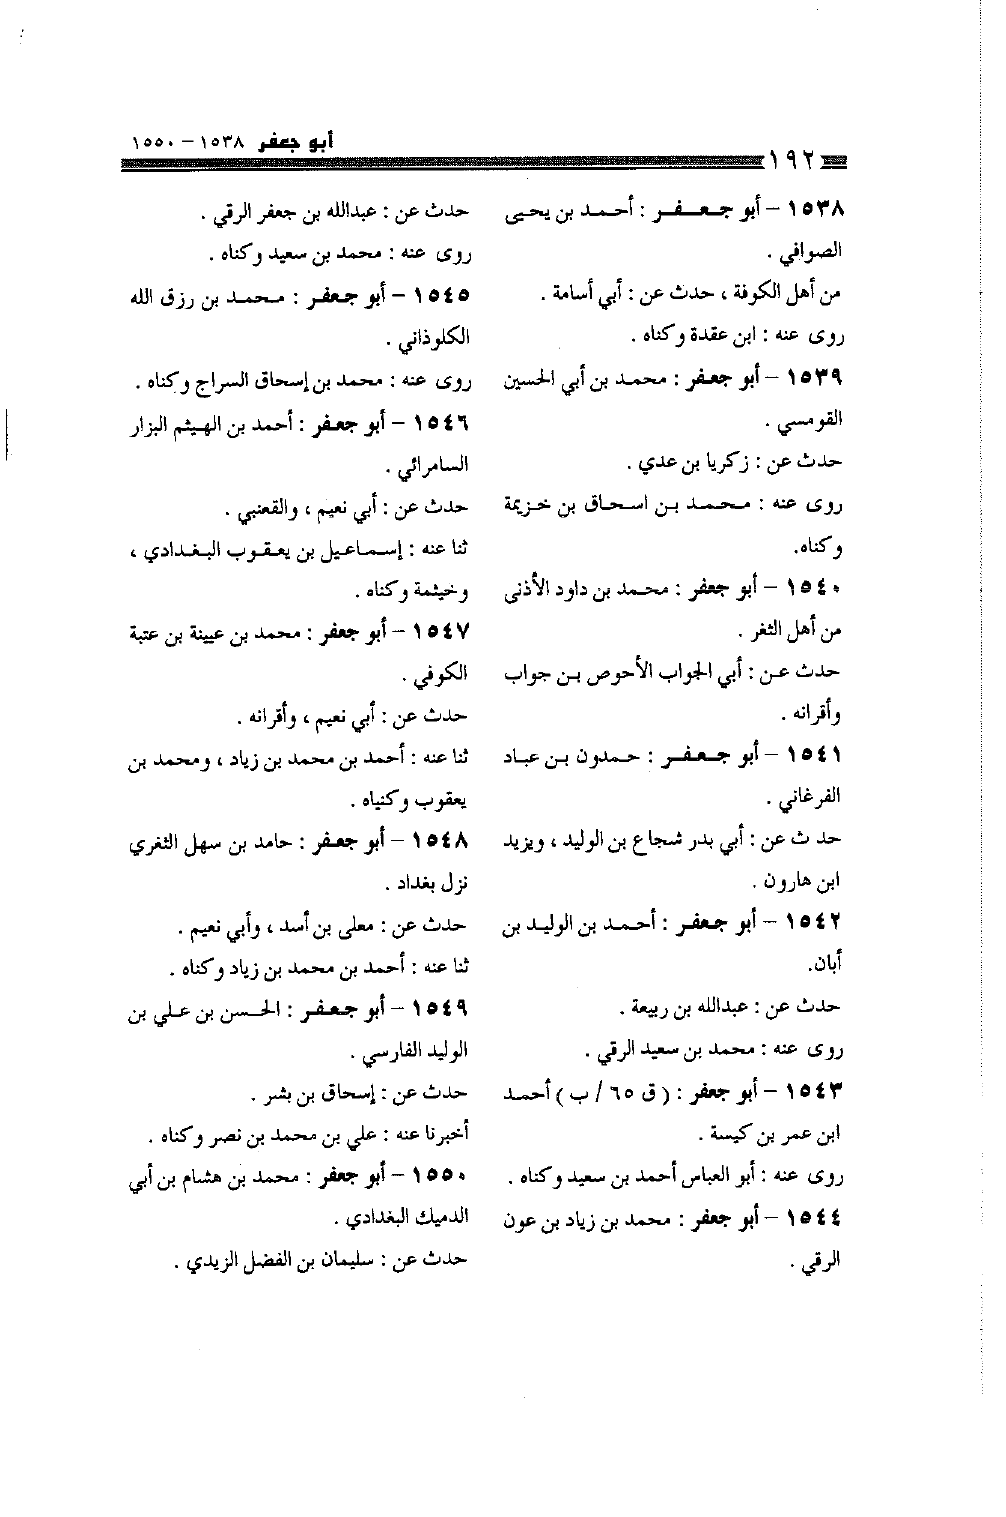 أبو جعفر ١٥٣٨ – ١٥٥٠
١٩٢
١٥٣٨ – أبو جعفر : أحمد بن يحيى
الصوافي .
من أهل الكوفة ، حدث عن : أبي أسامة .
روى عنه : ابن عقدة وكناه .
١٥٣٩ – أبو جعفر : محمد بن أبي الحسين
القومسي .
حدث عن : زكريا بن عدي .
روى عنه : محمد بن اسحاق بن خزيمة
وكناه.
١٥٤٠ – أبو جعفر : محمد بن داود الأذنى
من أهل الثغر .
حدث عن : أبي الجواب الأحوص بن جواب
وأقرانه .
١٥٤١ – أبو جعفر : حمدون بن عباد
الفرغاني .
حد ث عن : أبي بدر شجاع بن الوليد ، ويزيد
ابن هارون .
١٥٤٢ – أبو جعفر : أحمد بن الوليد بن
أبان.
حدث عن : عبدالله بن ربيعة .
روى عنه : محمد بن سعيد الرقي .
١٥٤٣ – أبو جعفر : ( ق ٦٥ / ب ) أحمد
ابن عمر بن كيسة .
روى عنه : أبو العباس أحمد بن سعيد وكناه .
١٥٤٤ – أبو جعفر : محمد بن زياد بن عون
الرقي .
حدث عن : عبدالله بن جعفر الرقي .
روى عنه : محمد بن سعيد وكناه .
١٥٤٥ – أبو جعفر : محمد بن رزق الله
الكلوذاني .
روى عنه : محمد بن إسحاق السراج وكناه .
١٥٤٦ – أبو جعفر : أحمد بن الهيثم البزار
السامرائي .
حدث عن : أبي نعيم ، والقعنبي .
ثنا عنه : إسماعيل بن يعقوب البغدادي ،
وخيثمة وكناه .
١٥٤٧ – أبو جعفر : محمد بن عيينة بن عتبة
الكوفي .
حدث عن : أبي نعيم ، وأقرانه .
ثنا عنه : أحمد بن محمد بن زياد ، ومحمد بن
يعقوب وكنياه .
١٥٤٨ – أبو جعفر : حامد بن سهل الثغري
نزل بغداد .
حدث عن : معلى بن أسد ، وأبي نعيم .
ثنا عنه : أحمد بن محمد بن زياد وكناه .
١٥٤٩ – أبو جعفر : الحسن بن علي بن
الوليد الفارسي .
حدث عن : إسحاق بن بشر .
أخبرنا عنه : علي بن محمد بن نصر وكناه .
١٥٥٠ – أبو جعفر : محمد بن هشام بن أبي
الدميك البغدادي .
حدث عن : سليمان بن الفضل الزيدي .